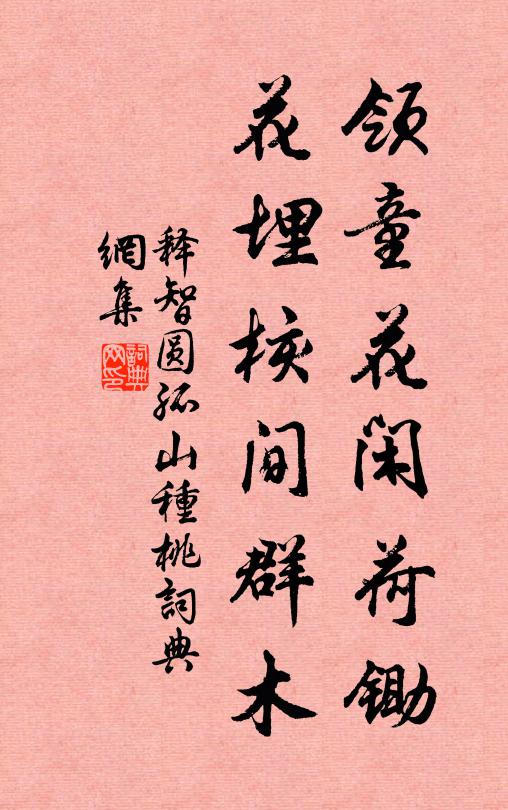 领童花闲荷锄
花埋核间群木
释智圆孤山種桃詞典
網集
詞典网印